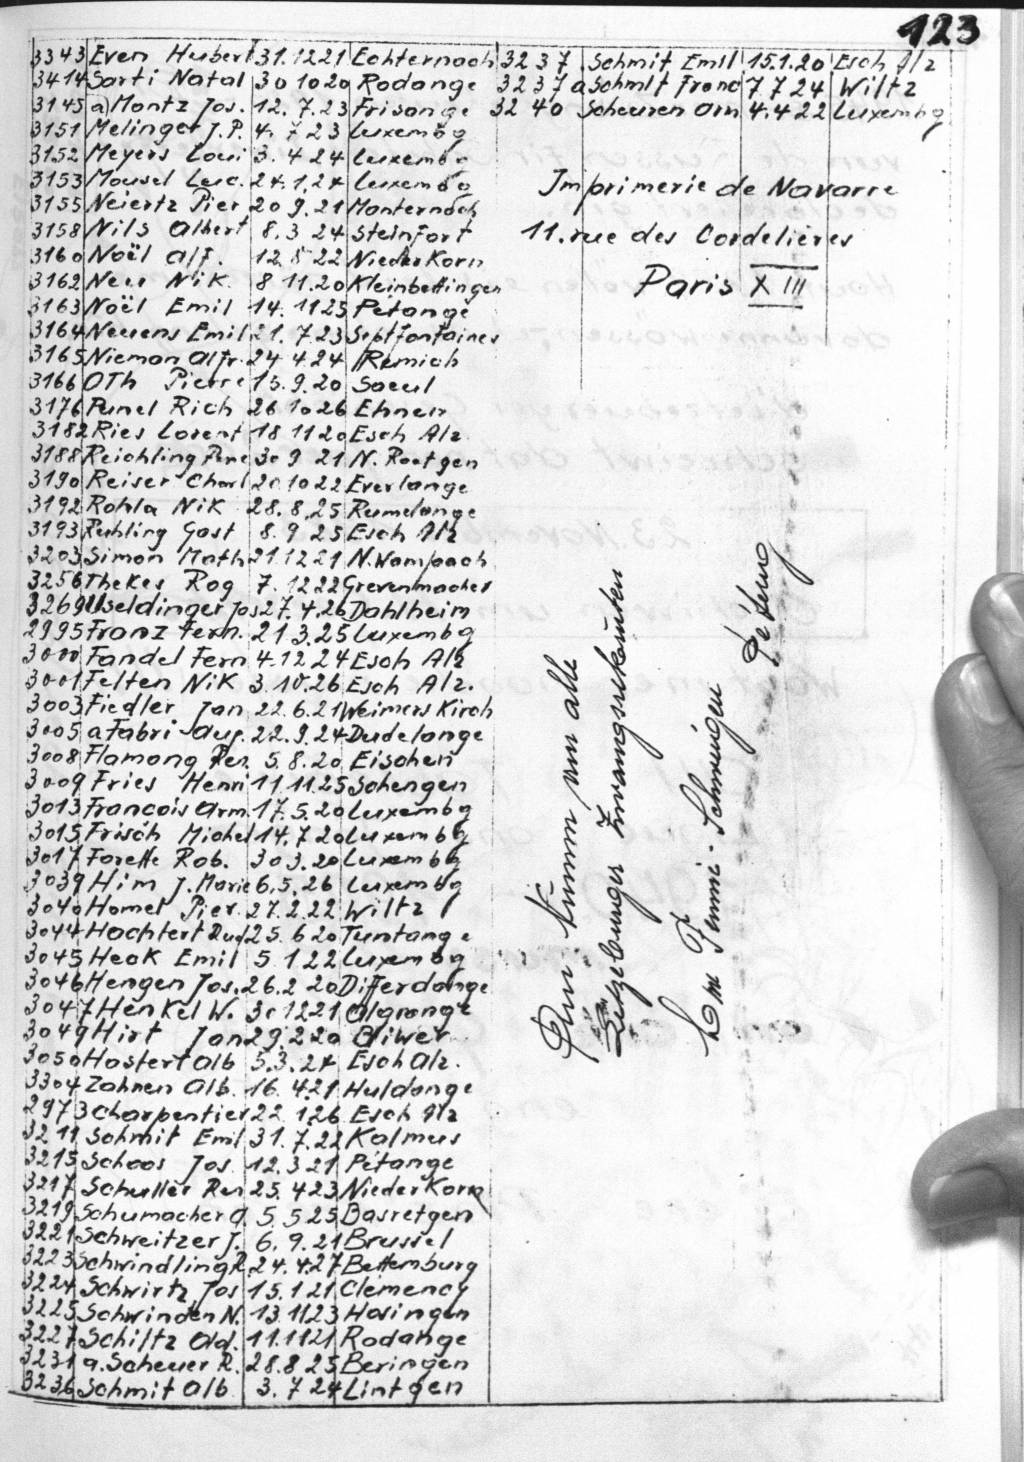 123
3343 Even Hubert 31.12.21 Echternach
3414 Sarti Natal 30 10 20 Rodange
3145 a) Mantz Jos. 12.7.23 Frisange
3151 Melinger J.P. 4.7 23 Luxembg
3152 Meyers Loui 3.4 24 Luxembg
3153 Mousel Luc. 24.1.24 Luxembg
3155 Neiertz Pier 20 9.21 Manternach
3158 Nils Albert 8.3 24 Steinfort
3160 Noël Alf. 12.5 22 NiederKorn
3162 Neu NiK. 8 11.20 Kleinbettingen
3163 Noël Emil 14.11 25 Pétange
3164 Neuens Emil 21.7.23 Septfontaines
3165 Nieman Alfr. 24 4 24 Remich
3166 OTh Pierre 15.9.20 Saeul
3176 Punel Rich 26 10 26 Ehnen
3182 Ries Lorent 18 11 20 Esch Alz
3188 Reichling Pierre 30 9 21 N. Roetgen
3190 Reiser Charl 20 10 22 Everlange
3192 Rohla NiK 28.8.25 Rumelange
3193 Ruhling Gast 8.9.25 Esch Alz
3203 Simon Math 21.12.21 N. Wampach
3256 TheKes Rog 7.12 22 Grevenmacher
3269 Useldinger Jos 27.4.26 Dahlheim
2995 Franz Fern. 21.3.25 Luxembg
3000 Fandel Fern 4.12 24 Esch Alz
3001 Felten NiK 3.10.26 Esch Alz.
3003 Fiedler Jan 22.6.21 Weimers Kirch
3005 a Fabri Aug. 22.9.24 Dudelange
3008 Flamang Ren. 5.8.20 Eischen
3009 Fries Henri 11.11.25 Schengen
3013 Francois Arm. 17.5.20 Luxembg
3015 Frisch Michel 14.7.20 Luxembg
3017 Forette Rob. 30 3.20 Luxembg
3039 Him J. Marie 6.5.26 Luxembg
3040 Hamet Pier. 27.2.22 Wiltz
3044 Hachtert Rud 25.6 20 Tuntange
3045 HeoK Emil 5.1 22 Luxembg
3046 Hengen Jos. 26.2 20 Differdange
3047 HenKel W. 30 12 21 Algrange
3049 Hirt Jan 29.2 20 Bliwer
3050 Hostert Alb 5.3.24 Esch Alz.
3304 Zahnen Alb. 16.4.21 Huldange
2973 Charpentier 22.1.26 Esch Alz
3211 Schmit Emil 31.7.22 Kalmus
3215 Schoos Jos. 12.3 21 Pétange
3217 Schuller Ren 25.4 23 NiederKorn
3219 Schumacher A. 5.5 25 Basretgen
3221 Schweitzer J. 6.9.21 Brussel
3223 Schwindling R. 24.4.27 Bettemburg
3224 Schwirtz Jos 15.1 21 Clemency
3225 Schwinden N. 13.11 23 Hosingen
3227 Schiltz Ad. 11.11 21 Rodange
3231 a. Scheuer R. 28.8 25 Beringen
3236 Schmit Alb 3.7 24 Lintgen
3237 Schmit Emil 15.1.20 Esch Alz
3237 a Schmit Franc 7.7.24 Wiltz
3240 Scheuren Arm 4.4.22 Luxembg
Imprimerie de Navarre
11. rue des Cordelières
Paris XIII
Dun Numm vun alle
Lëtzebuerger Zwangsrekrutéen
Pétung